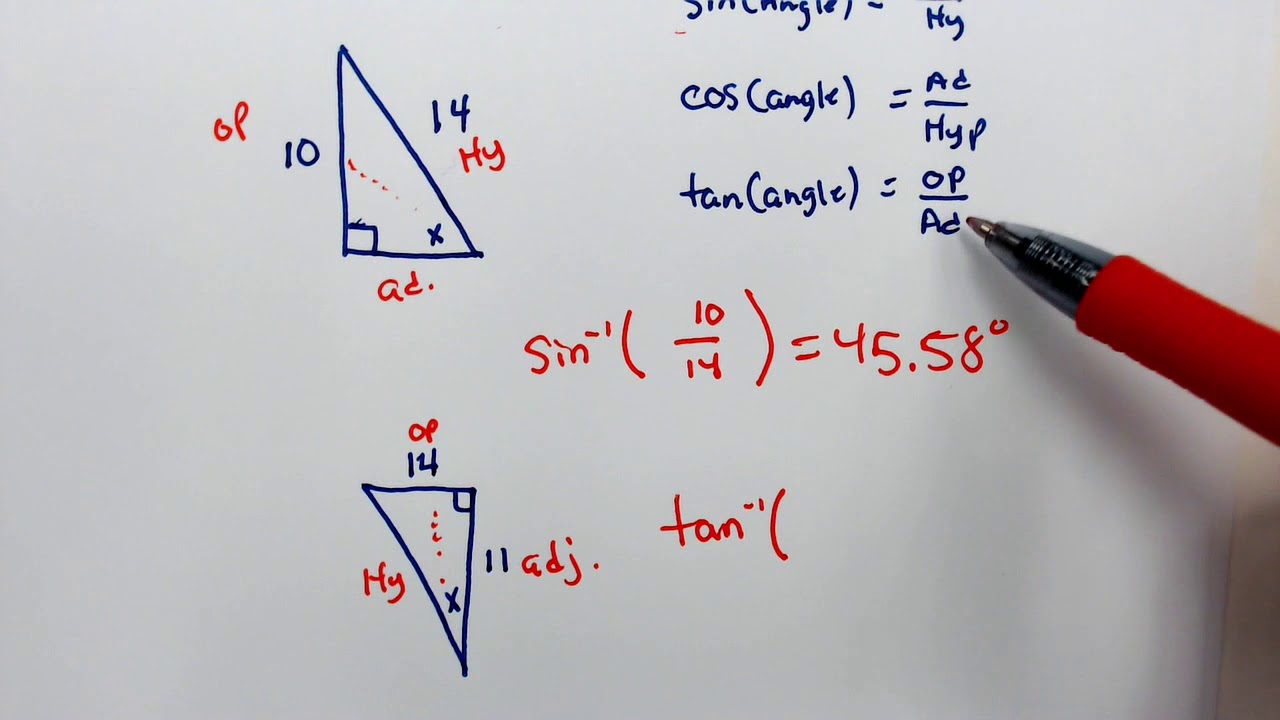 sin(angle) =
Hy
cos(angle) = Ad
Hyp
tan(angle) = OP
Ad
OP
10
14
Hy
x
ad.
sin⁻¹( 10
14 ) = 45.58°
OP
14
Hy
x
11 adj.
tan⁻¹(